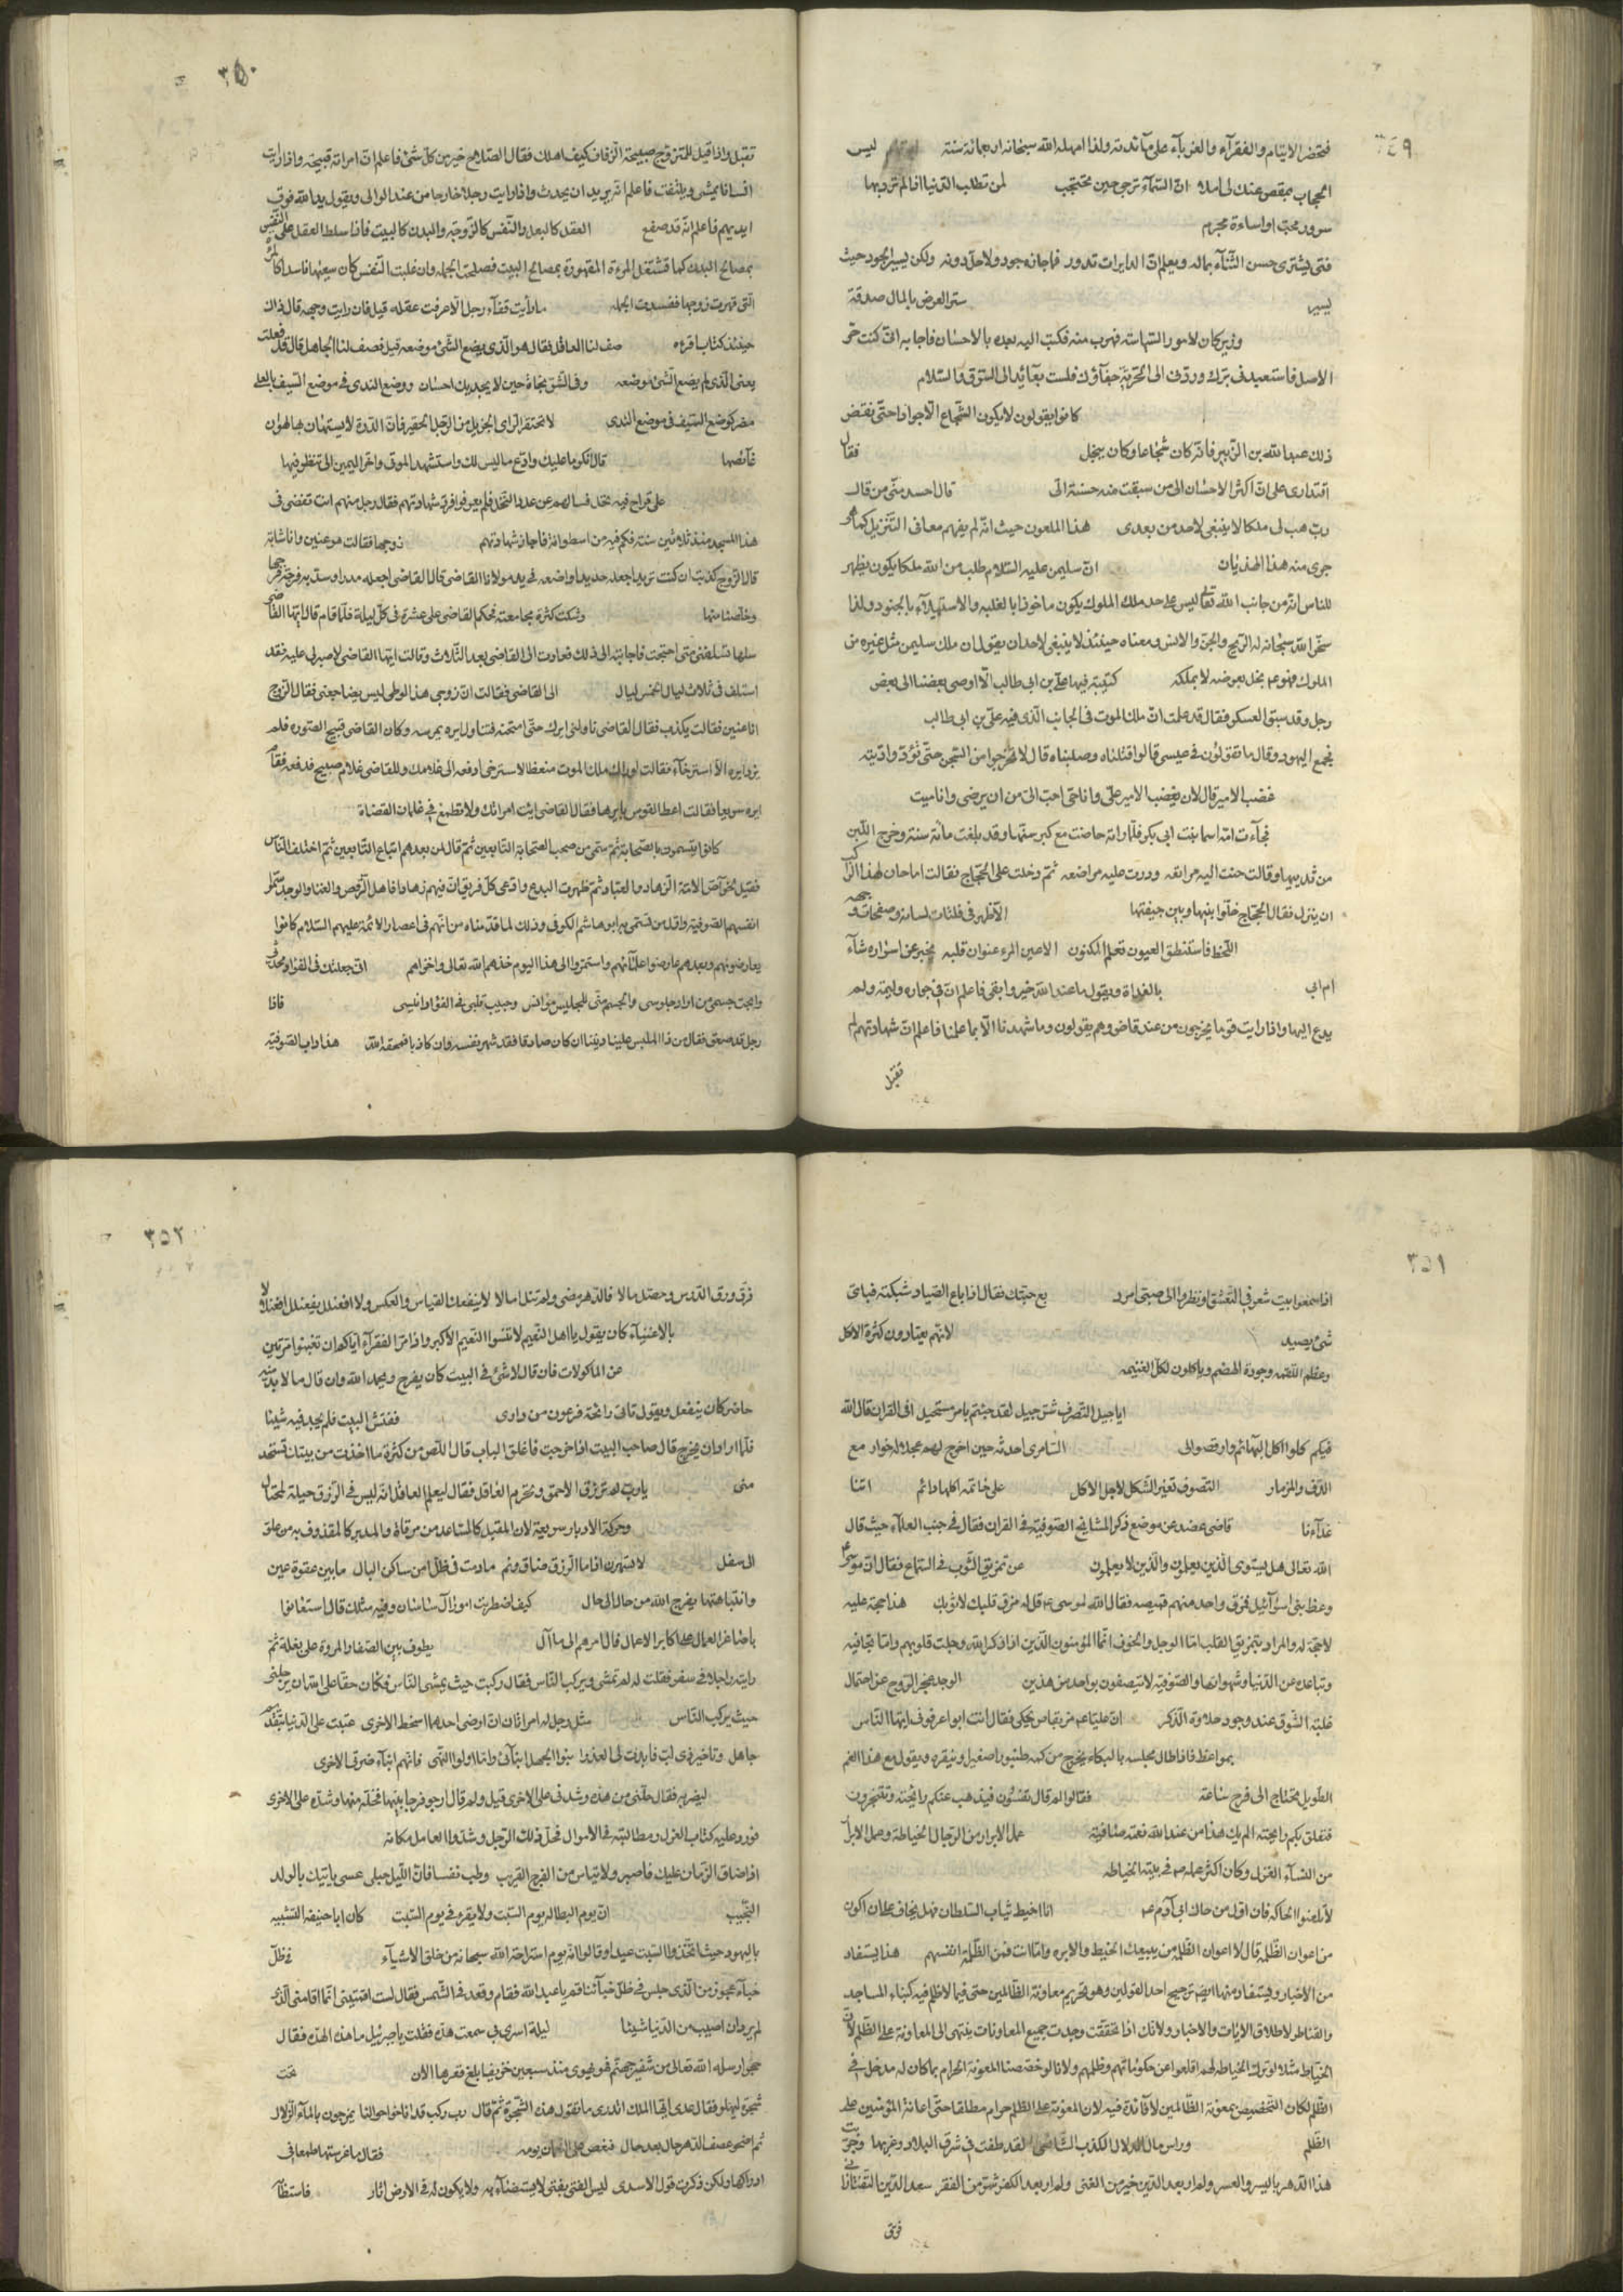 ٣٤٩
فتحضر الايتام والفقرآء والغربآء على مآئدته ولذا امهله الله سبحانه اربعمائة سنة ليس
الحجاب بمقص عنك لى املا ان السّمآء ترجى حين تحتجب لمن تطلب الدّنيا اذا لم ترد بها
سرور محبّ او اساءة مجرم
فتى يشترى حسن الثّنآء بماله ويعلم انّ الدايرات تدور فما جازه جود ولا حلّ دونه ولكن يسير الجود حيث
يسير ستر العرض بالمال صدقة
وزير كان لامور السّهاسته فهرب منه فكتب اليه بعده بالاحسان فاجابه انّى كنت حرّ
الاصل فاستعبدنى برّك وردّنى الى الحرّيّة جفآؤك فلست بعآئد الى السّوق والسّلام
كانوا يقولون لا يكون الشّجاع الّا جوادا حتّى نقض
ذلك عبد الله بن الزّبير فانّه كان شجاعا وكان يبخل فقال
اقتدارى على انّ اكثر الاحسان الى من سبقت منه حسنة الىّ قال احسد منّى من قال
ربّ هب لى ملكا لا ينبغى لاحد من بعدى هذا الملعون حيث انّه لم يفهم معانى التّنزيل كما هو
جرى منه هذا الهذيان انّ سليمن عليه السّلام طلب من الله ملكا يكون يظهر
للناس انّه من جانب الله تعالى ليس على حد ملك الملوك يكون ماخوذا بالغلبه والاستيلآء بالجنود ولذا
سخّر الله سبحانه له الرّيح والجنّ والانس ومعناه حينئذ لا ينبغى لاحد ان يقول ان ملك سليمن مثل غيره من
الملوك فهو عم بخل بعرضه لا بملكه كتيبة فيها علىّ بن ابى طالب الّا اوصى بعضنا الى بعض
رجل وقد سبق العسكر فقال قد علمت انّ ملك الموت فى الجانب الّذى فيه علىّ بن ابى طالب
فجمع اليهود وقال ما تقولون فى عيسى قالوا قتلناه وصلبناه قال لا تخرجوا من السّجن حتّى تؤدّوا ديته
غضب الامير قال لان يغضب الامير علىّ وانا حىّ احبّ الىّ من ان يرضى وانا ميت
فجآءت امّه اسما بنت ابى بكر فلمّا راته حاضت مع كبر سنّها وقد بلغت مائة سنة وخرج اللّبن
من ثدييها وقالت حنّت اليه مراتعه ودرّت عليه مراضعه ثمّ دخلت على الحجّاج فقالت اما حان لهذا الرّاكب
ان ينزل فقال الحجّاج خلّوا بينها وبين جيفتها الّا ظهر فى فلتات لسانه وصفحات وجهه
اللّحظ فاستنطق العيون تعلم المكنون الاعين المرء عنوان قلبه يخبر عن اسراره شآء
ام ابى بالغداة ويقول ما عند الله خير وابقى فاعلم انّ فى جواره وليمة ولم
يدع اليها واذا رايت قوما يخرجون من عند قاض وهم يقولون وما شهدنا الّا بما علمنا فاعلم انّ شهادتهم لم
تقبل
٣٥٠
تقبل واذا قيل للمتزوّج صبيحة الزّفاف كيف اهلك فقال الصّلاح خير من كلّ شىء فاعلم انّ امراته قبيحة واذا رايت
انسانا يمشى ويلتفت فاعلم انّه يريد ان يحدث واذا رايت رجلا خارجا من عند الوالى ويقول يد الله فوق
ايديهم فاعلم انّه قد صفع العقل كالبعل والنّفس كالزّوجة والبدن كالبيت فاذا سلط العقل على النّفس
بمصالح البدن كما تشتغل المرءة المقهورة بمصالح البيت فصلحت الجمله وان غلبت النّفس كان سعيها فاسدا كالمرءة
الّتى قهرت زوجها ففسدت الجمله ما رأيت قفآء رجل الّا عرفت عقله قيل فان رايت وجهه قال ذاك
حينئذ كتاب اقرءه صف لنا العاقل فقال هو الّذى يضع الشّىء موضعه قيل فصف لنا الجاهل قال قد فعلت
يعنى الّذى لم يضع الشّىء موضعه وفى الشّرّ نجاة حين لا ينجيك احسان ووضع الندى فى موضع السّيف بالعلى
مضر كوضع السّيف فى موضع الندى لا تحتقر الرّاى الجزيل من الرّجل الحقير فانّ الدّرة لا يستهان بها لهوان
غآئصها قال انكر ما عليك وادّع ما ليس لك واستشهد الموتى واخّر اليمين الى ننظر فيها
على قراح فيه نخل فسالهم عن عدد النّخل فلم يعرفوا فردّ شهادتهم فقال رجل منهم انت تقضى فى
هذا المسجد منذ ثلاثين سنة فكم فيه من اسطوانة فاجاز شهادتهم زوجها فقالت هو عنين وانا شابّة
قال الزّوج كذبت
وخلّصنا منها وشكت كثرة مجامعته فحكم القاضى على عشرة فى كلّ ليلة فلمّا قام قال ايّها القاضى
سلها تسلفنى متى احتجت فاجابته الى ذلك فعاودت الى القاضى بعد الثّلاث وقالت ايّها القاضى لا صبر لى عليه فقد
استلف فى ثلاث ليال الخمس ليال الى القاضى فقالت انّ زوجى هذا الوطى ليس يضاجعنى فقال الزّوج
انا عنين فقالت يكذب فقال القاضى ناولنى ايرك حتّى امتحنه فتناول ايره يمرسه وكان القاضى قبيح الصّورة فلم
يزد ايره الاّ استرخآء فقالت لو راك ملك الموت منعظا لاسترخى ادفعه الى غلامك وللقاضى غلام صبيح فدفعه فقام
ايره سريعا فقالت اعط القوس باريها فقال القاضى ايت امراتك ولا تطمع فى غلمان القضاة
كانوا يتسمون بالصّحابة ثمّ سمّى من صحب الصّحابة التّابعين ثمّ قال لمن بعدهم اتباع التّابعين ثمّ اختلف النّاس
فقيل لخواصّ الامّة الزّهاد والعبّاد ثمّ ظهرت البدع وادّعى كلّ فريق انّ فيهم زهادا فاهل الرّقص والغنا والوجد سمّوا
انفسهم الصّوفية واوّل من تسمّى به ابو هاشم الكوفى وذلك لما قدّمناه من انّهم فى اعصار الائمّة عليهم السّلام كانوا
يعارضونهم وبعدهم عارضوا علمائهم واستمرّوا الى هذا اليوم خذلهم الله تعالى واخزاهم انّى جعلتك فى الفؤاد محدّثى
وابحت جسمى من اراد جلوسى والجسم منّى للجليس موانس وحبيب قلبى فى الفؤاد انيسى فاذا
رجل قد صعق فقال من ذا الملبس علينا ديننا ان كان صادقا فقد شهر نفسه وان كان كاذبا فمحقه الله هذا داب الصّوفية
٣٥١
اذا سمعوا بيت شعر فى التّعشّق او نظروا الى صبىّ امرد بع جبّتك فقال اذا باع الصّياد شبكته فباىّ
شىء يصيد لانّهم يعتادون كثرة الاكل
وعظم اللّقمه وجودة الهضم وياكلون لكلّ الغنيمه
ايا جيل التّصوّف شرّ جيل لقد جئتم بامر مستحيل افى القران قال الله
فيكم كلوا اكل البهائم وارقصوا لى السّامرى احدثه حين اخرج لهم عجلا له خوار مع
الدّف والمزمار التّصوف تغير الشّكل لاجل الاكل على خاتمه اكلها دائم اتنا
غدآءنا قاضى عضد عن موضع ذكر المشايخ الصّوفية فى القران فقال فى جنب العلمآء حيث قال
الله تعالى هل يستوى الّذين يعلمون والّذين لا يعلمون عن تمزيق الثّوب فى السّماع فقال انّ موسى عم
وعظ بنى اسرآئيل فمزّق واحد منهم قميصه فقال الله لموسى عم قل له مزّق قلبك لا ثوبك هذا حجّة عليه
لا حجّة له والمراد بتمزيق القلب امّا الوجل والخوف انّما المؤمنون الّذين اذا ذكر الله وجلت قلوبهم وامّا تجافيه
وتباعده عن الدّنيا وشهواتها والصّوفية لا تتّصفون بواحد من هذين الوجد عجز الرّوح عن احتمال
غلبة الشّوق عند وجود حلاوة الذّكر انّ عليّا عم مرّ بقاصّ يحكى فقال انت ابو اعرفونى ايّها النّاس
بمواعظ فاذا طال مجلسه بالبكاء يخرج من كمه طنبورا صغيرا وينقره ويقول مع هذا الغم
الطّويل يحتاج الى فرح ساعة فقالوا لم قال تفسون فيذهب عنكم رايحته وتتبخرون
فتعلق بكم رايحته الم يك هذا من عند الله نعمة صافية عمل الابرار من الرّجال الخياطة وعمل الابرار
من النّسآء الغزل وكان اكثر عمله صم فى بيته الخياطه
لا تلعنوا الحاكة فان اوّل من حاك ابى آدم عم انا اخيط ثياب السّلطان فهل يخاف علىّ ان اكون
من اعوان الظّلمة قال لا اعوان الظّلمة من يبيعك الخيط والابره وامّا انت فمن الظّلمة انفسهم هذا يستفاد
من الاخبار ويستفاد منها ايضا ترجيح احد القولين وهو تحريم معاونة الظّالمين حتّى فيما لا ظلم فيه كبناء المساجد
والقناطر لاطلاق الايات والاخبار ولانّك اذا تحقّقت وجدت جميع المعاونات ينتهى الى المعاونة على الظّلم لانّ
الخيّاط مثلا لو ترك الخياطه لهم اقلعوا عن حكوماتهم وظلمهم ولانا لو خصّصنا المعونة الحرام بما كان له مدخل فى
الظّلم لكان التّخصيص بمعونة الظّالمين لا فآئدة فيه لان المعونة على الظّلم حرام مطلقا حتّى اعانة المؤمنين على
الظّلم وراس مال الدلال الكذب لقد طفت فى شرق البلاد وغربها وجرّبت
هذا الدّهر باليسر والعسر ولم ار بعد الدّين خيرا من الغنى ولم ار بعد الكفر شرّا من الفقر سعد الدّين التّفتازانى
فرّق
٣٥٢
فرّق ورق الدّرس وحصّل مالا فالدّهر مضى ولم تنل امالا لا ينفعك القياس والعكس ولا افعنلل يفعنلل افعنلالا
بالاغنيآء كان يقول يا اهل النّعيم لا تنسوا النّعيم الاكبر واذا مرّ الفقرآء ايّاكم ان تغبنوا مرّتين
عن الماكولات فان قال لا شىء فى البيت كان يفرح ويحمد الله وان قال ما لا بدّ منه
حاضر كان ينفعل ويقول تاتى رائحة فرعون من دارى ففتش البيت فلم يجد فيه شيئا
فلمّا اراد ان يخرج قال صاحب البيت اذا خرجت فاغلق الباب قال اللّص من كثرة ما اخذت من بيتك تستخدمنى
يا ربّ لم ترزق الاحمق وتحرم العاقل فقال ليعلم العاقل انّه ليس فى الرّزق حيلة لمحتال
وحركة الادبار سريعة لان المقبل كالمتصاعد من مرقاة والمدبر كالمقذوف به من علوّ
الى سفل لا تسهرن اذا ما الرّزق ضاق ونم مادمت فى ظلّ امن ساكن البال ما بين غفوة عين
وانتباهتها يفرج الله من حال الى حال كيف اضطربت امور آل ساسان وفيه مثلك قال استعانوا
باصاغر العمال على اكابر الاعمال فال امرهم الى ما آل يطوف بين الصّفا والمروة على بغلة ثمّ
رايته راجلا فى سفر فقلت له لم تمشى ويركب النّاس فقال ركبت حيث يمشى النّاس فكان حقّا على الله ان يرجلنى
حيث يركب النّاس مثل رجل له امراتان ان ارضى احدهما اسخط الاخرى عتبت على الدّنيا بتقديم
جاهل وتاخير ذى لبّ فابدت لى العذرا بنوا الجهل ابنآئى وامّا اولوا النّهى فانّهم ابنآء ضرّتى الاخرى
ليضربه فقال حلّنى من هذه وشدّنى على الاخرى قيل ولم قال ارجو فرجا بينهما فحلّه منها وشدّه على الاخرى
فورد عليه كتاب العزل ومطالبته فى الاموال فحلّ ذلك الرّجل وشدّوا العامل مكانه
اذا ضاق الزّمان عليك فاصبر ولا تياس من الفرج القريب وطب نفسا فانّ اللّيل حبلى عسى ياتيك بالولد
النّجيب انّ يوم البطالة يوم السّبت ولا يقرء فى يوم السّبت كان ابا حنيفة التشبيه
باليهود حيث اتّخذوا السّبت عيدا وقالوا انّه يوم استراحة الله سبحانه من خلق الاشيآء فى ظلّ
خبآء عجوز من الّذى جلس فى ظلّ خبآئنا قم يا عبد الله فقام وقعد فى الشّمس فقال لست اقمتنى انّما اقامنى الّذى
لم يرد ان اصيب من الدّنيا شيئا ليلة اسرى بى سمعت هدّة فقلت يا جبرئيل ما هذه الهدّة فقال
حجر ارسله الله تعالى من شفير جهنّم فهو يهوى منذ سبعين خريفا بلغ قعرها الان تحت
شجرة ليهلو فقال عدى ايّها الملك اتدرى ما تقول هذه الشّجرة ثمّ قال ربّ ركب قد اناخوا حولنا يمزجون بالمآء الزّلال
ثمّ اضحو عصف الدّهر حال بعد حال فنغص على النعمان يومه فقال ما غرستها طمعا فى
ادراكها ولكن ذكرت قول الاسدى ليس الفتى بفتى لا يستضآء به ولا يكون له فى الارض اثار فاستظآ